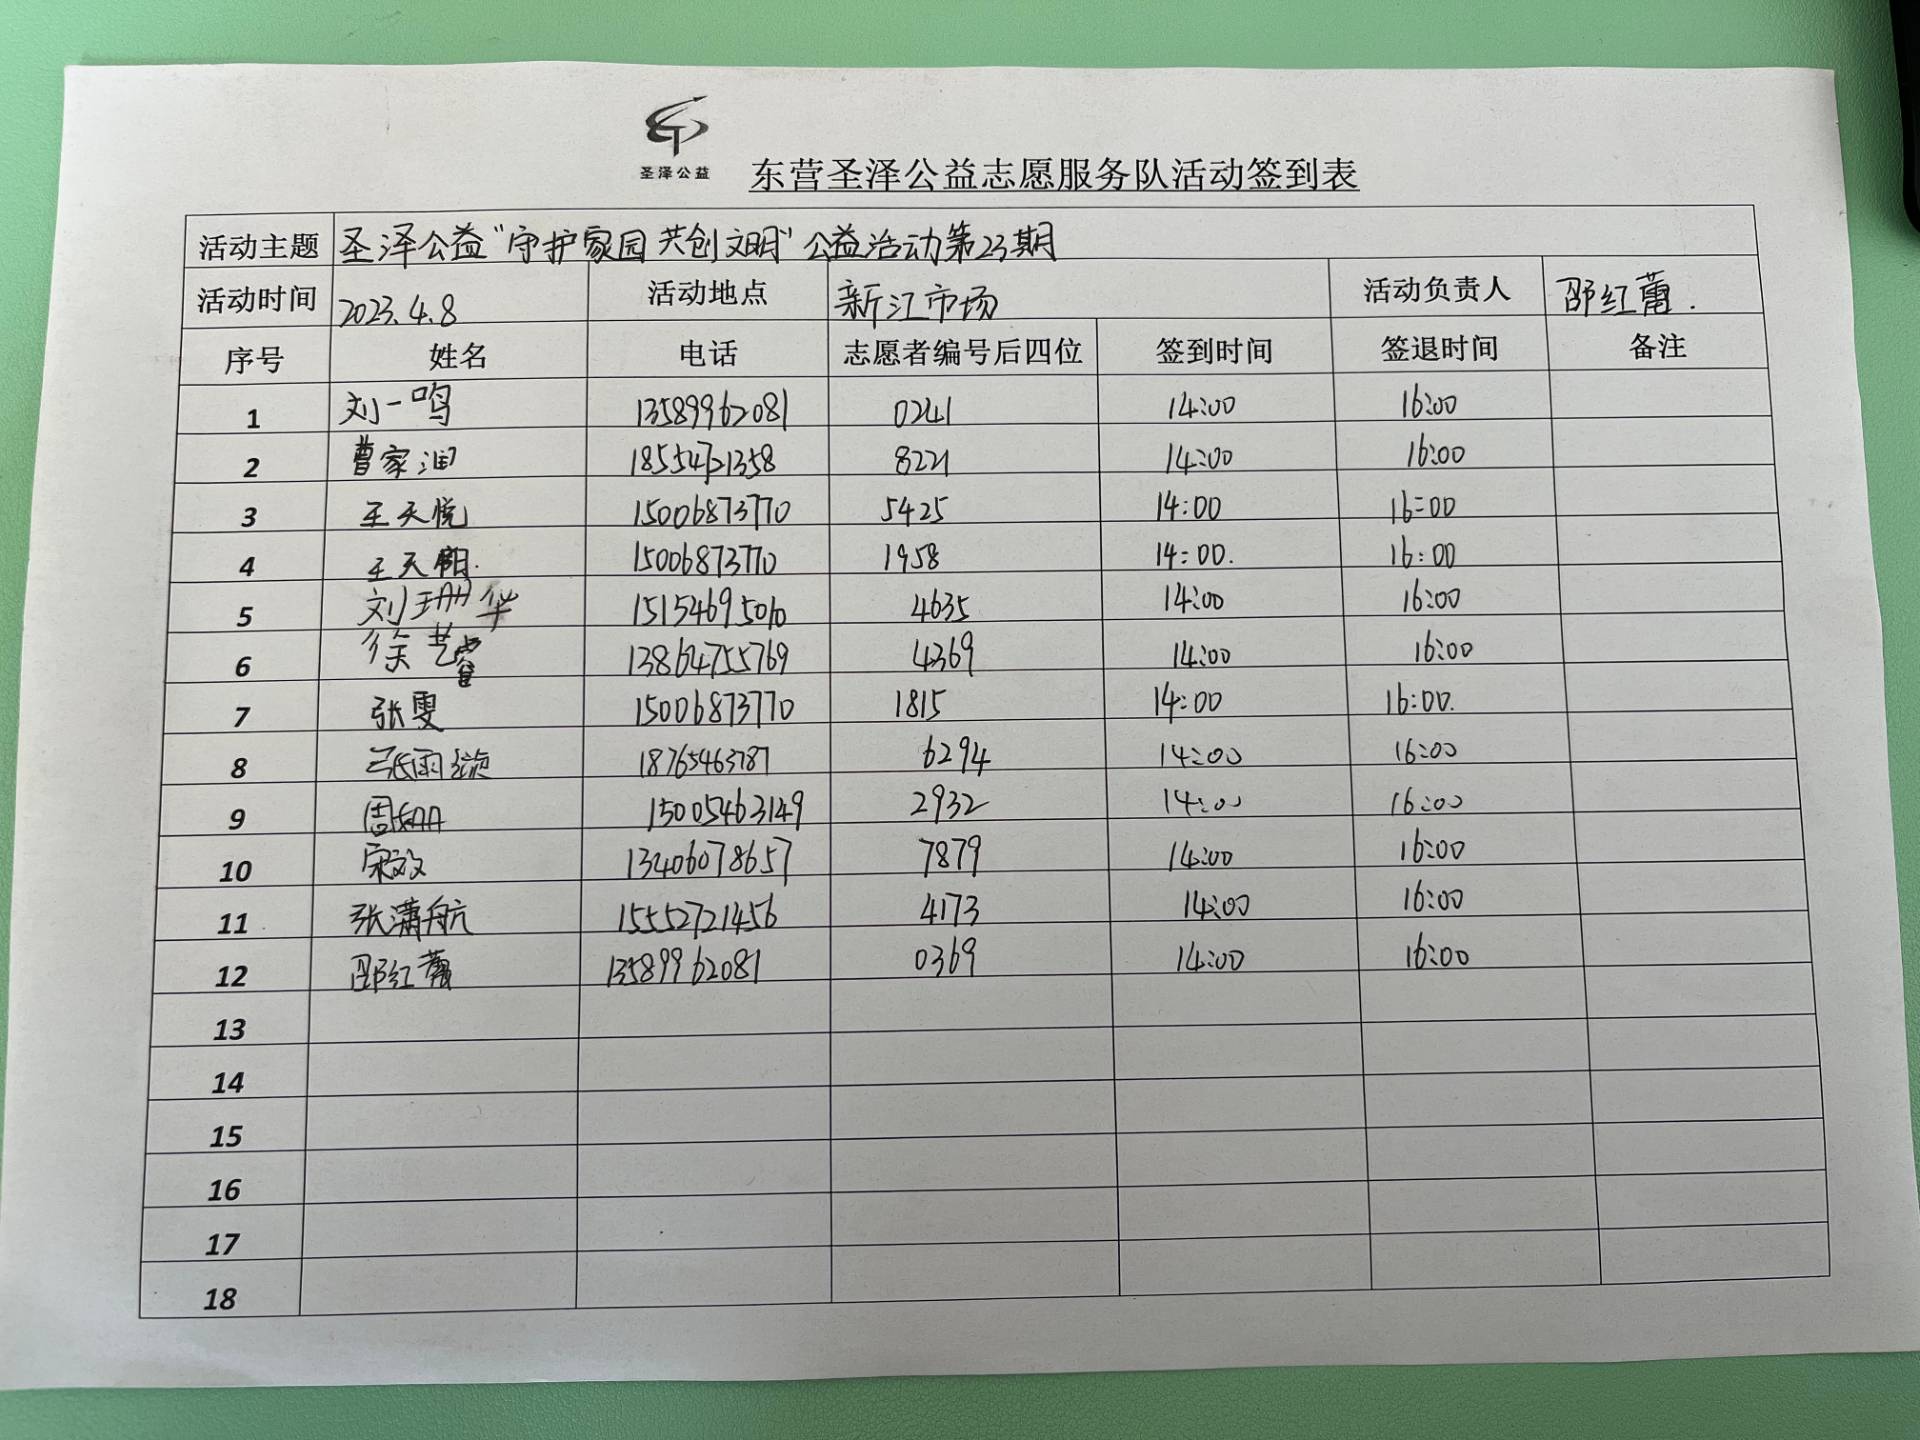 圣泽公益
东营圣泽公益志愿服务队活动签到表
活动主题 圣泽公益"守护家园 共创文明"公益活动第23期
活动时间 2023.4.8 活动地点 新江市场 活动负责人 邵红蕾.
序号 姓名 电话 志愿者编号后四位 签到时间 签退时间 备注
1 刘一鸣 13589962081 0241 14:00 16:00
2 曹家润 18554721358 8221 14:00 16:00
3 王天悦 15006873770 5425 14:00 16:00
4 王天 15006873770 1958 14:00. 16:00
5 刘珊华 15154695010 4635 14:00 16:00
6 徐艺 13864755769 4369 14:00 16:00
7 张雯 15006873770 1815 14:00 16:00.
8 张雨 18765463787 6294 14:00 16:00
9 周 15005463149 2932 14:00 16:00
10 宋效 13406078657 7879 14:00 16:00
11 张潇航 15552721456 4173 14:00 16:00
12 邵红蕾 13589962081 0369 14:00 16:00
13
14
15
16
17
18